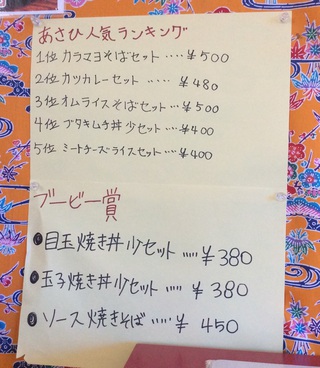 あさひ人気ランキング
1位 カラマヨそばセット ‥‥ ¥500
2位 カツカレーセット ‥‥ ¥480
3位 オムライスそばセット ‥‥ ¥500
4位 ブタキムチ丼 少セット ‥‥ ¥400
5位 ミートチーズライスセット ‥‥ ¥400
ブービー賞
目玉焼き丼 少セット ‥‥ ¥380
玉子焼き丼 少セット ‥‥ ¥380
ソース焼きそば ‥‥ ¥450